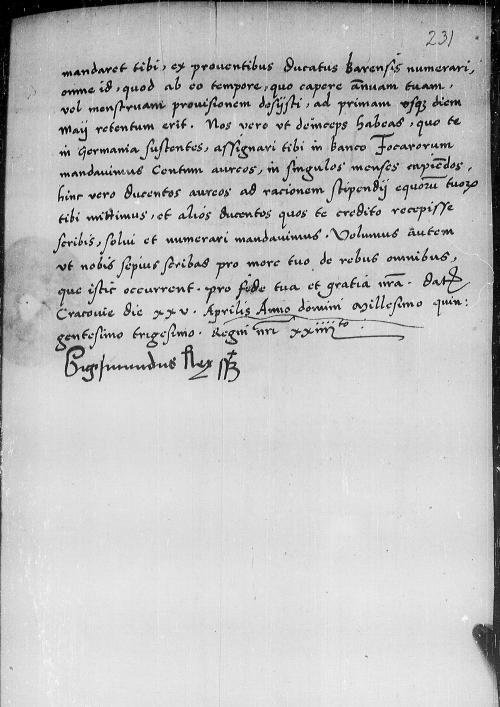 231
mandaret tibi, ex proventibus Ducatus Barensis numerari,
omne id, quod ab eo tempore, quo capere annuam tuam,
vel menstruam provisionem desijsti, ad primam usq₃ diem
Maij retentum erit. Nos vero ut deinceps habeas, quo te
in Germania sustentes, assignari tibi in banco Focarorum
mandavimus Centum aureos, in singulos menses capiēdos,
hinc vero ducentos aureos ad racionem stipendij equorū tuoꝝ
tibi mittimus, et alios ducentos quos te credito recepisse
scribis, solui et numerari mandauimus. Volumus autem
ut nobis sepius scribas pro more tuo de rebus omnibus,
que istic occurrent. pro fide tua et gratia nrā. Datꝫ
Cracovie die xxv. Aprilis Anno domini Millesimo quin:
gentesimo trigesimo. Regni nri xxiiijto.
Sigismundus Rex